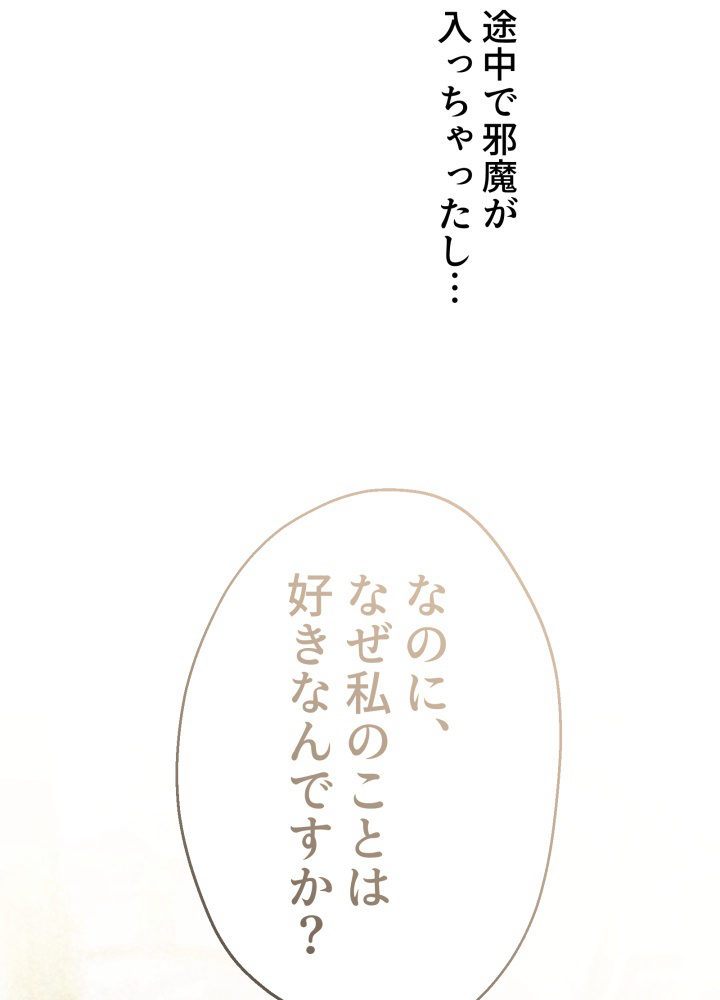 途中で邪魔が
入っちゃったし…
なのに、
なぜ私のことは
好きなんですか？